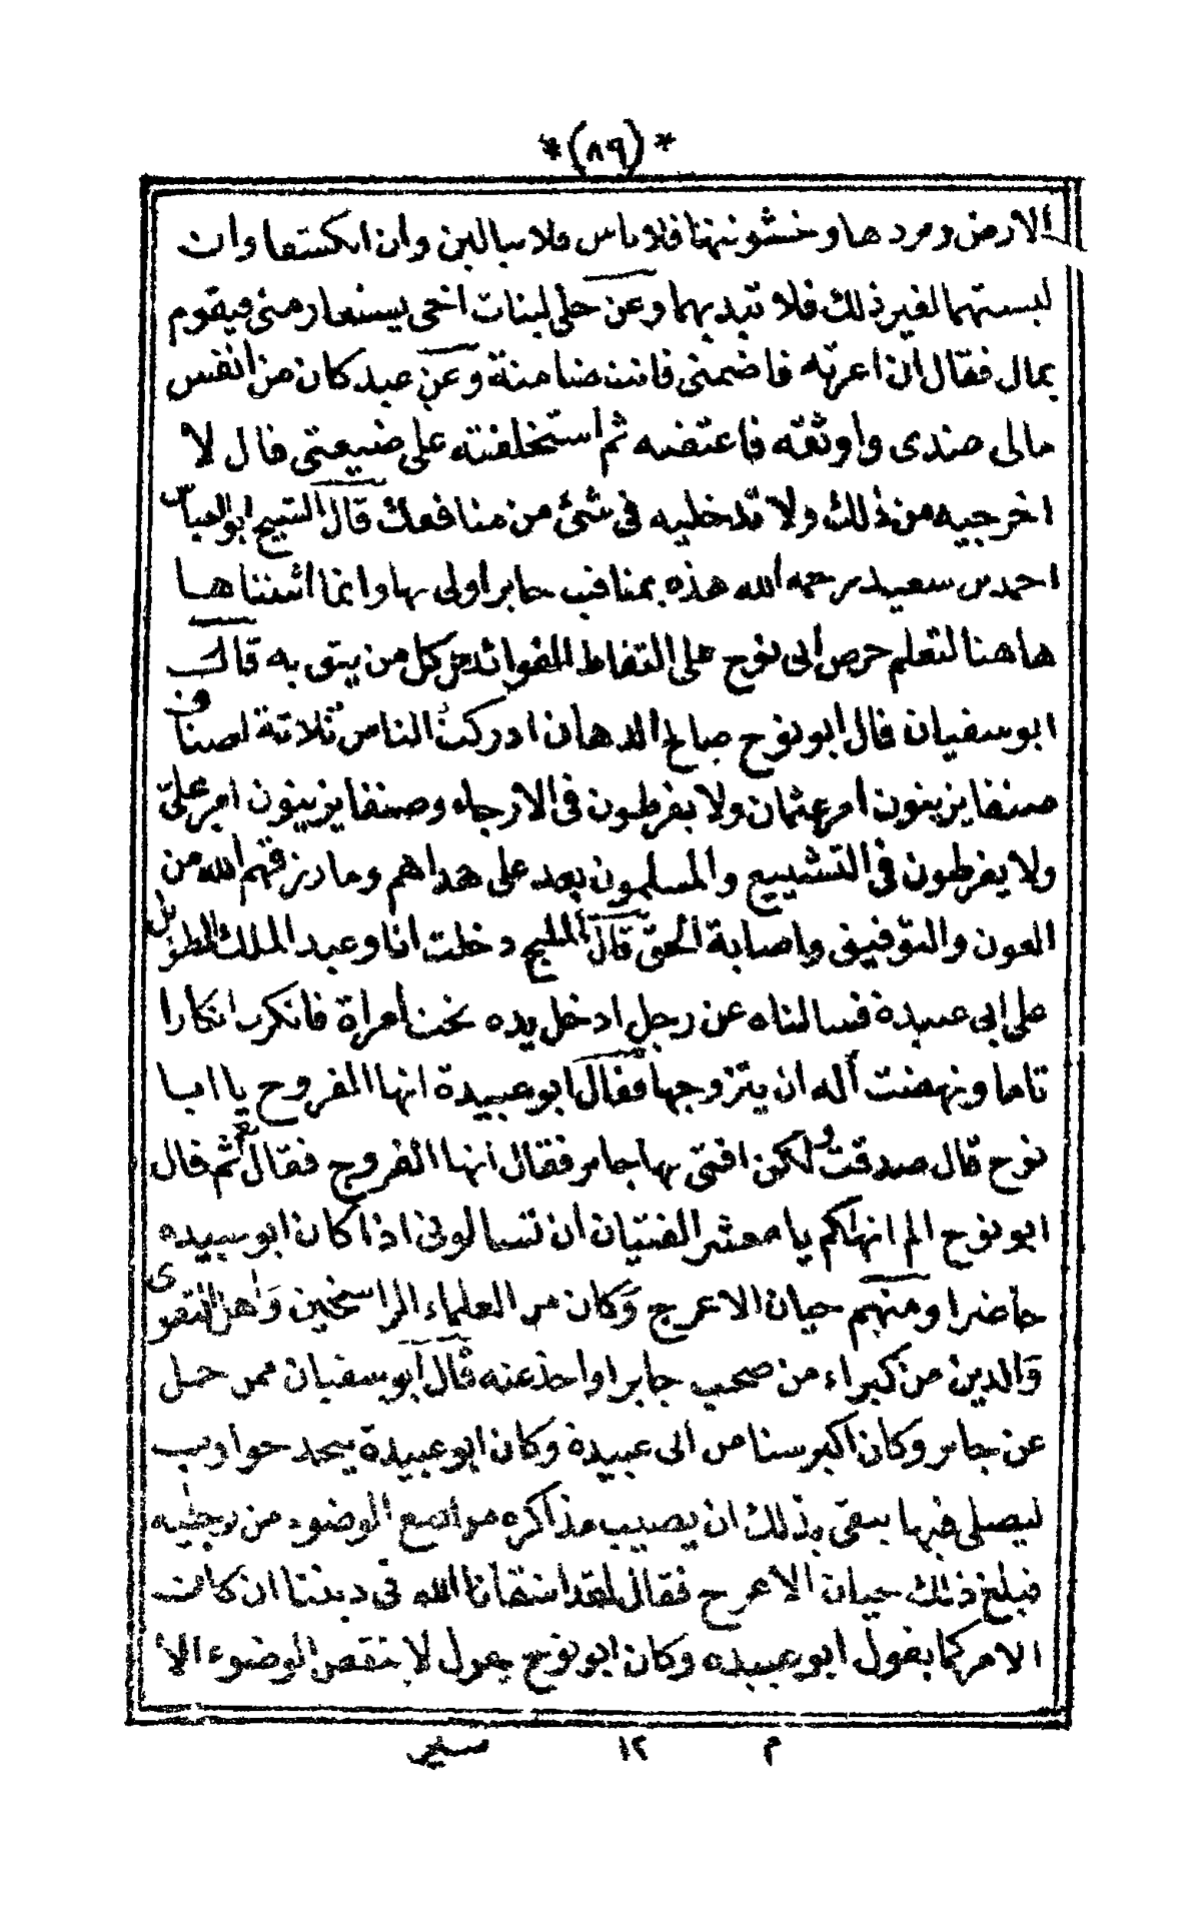 *(٨٩)*
الارض وبردها وخشونتها فلا باس فلا تبالين وان انكشفا وان
لبستهما لغير ذلك فلا تبديهما وعن حلى لبنات اخى يستعار منى فيقوم
بمال فقال ان اعرته فاضمنى فانت ضامنة وعن عبد كان من انفس
مالى عندى واوثقه فاعتقته ثم استخلفته على ضيعتى قال لا
اخرجيه من ذلك ولا تدخليه فى شئ من منافعك قال الشيخ ابو العباس
احمد بن سعيد رحمه الله هذه بمناقب جابر اولى بها وانما اثبتناها
هاهنا لتعلم حرص ابى نوح على التقاط الفوائد من كل من يثق به قال
ابو سفيان قال ابو نوح صالح الدهان ادركت الناس ثلاثة اصناف
صنفا يزينون امر عثمان ولا يفرطون فى الارجاء وصنفا يزينون امر على
ولا يفرطون فى التشييع والمسلمون بعد على هداهم وما رزقهم الله من
العون والتوفيق واصابة الحق قال المليح دخلت انا وعبد الملك الطويل
على ابى عبيدة فسالناه عن رجل ادخل يده تحت امراة فانكر انكارا
تاما ونهضت أله ان يتزوجها فقال ابو عبيدة انها الفروج يا ابا
نوح قال صدقت ولكن افتى بها جابر فقال انها الفروج فقال نعم ثم قال
ابو نوح الم انهاكم يا معشر الفتيان ان تسالونى اذا كان ابو عبيده
حاضرا ومنهم حيان الاعرج وكان من العلماء الراسخين واهل التقوى
والدين من كبراء من صحب جابرا واخذ عنه قال ابو سفيان ممن حمل
عن جابر وكان اكبر سنا من ابى عبيدة وكان ابو عبيدة يتخذ جوارب
ليصلى فيها يتقى بذلك ان يصيب مذاكره مواضع الوضوء من رجليه
فبلغ ذلك حيان الاعرج فقال لقد اشقانا الله فى ديننا ان كان
الامر كما يقول ابو عبيده وكان ابو نوح يقول لا ينقض الوضوء الا
م ١٢ سير